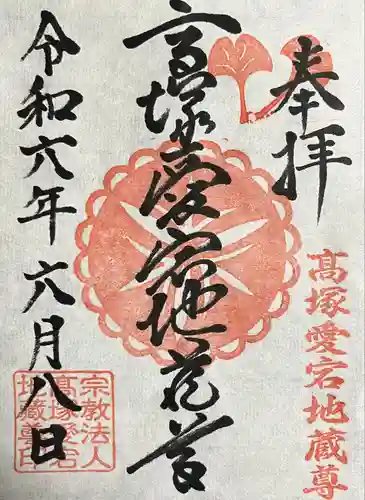 奉拝
髙塚愛宕地蔵尊
髙塚愛宕地蔵尊
令和六年六月八日
宗教法人
髙塚愛宕
地蔵尊印